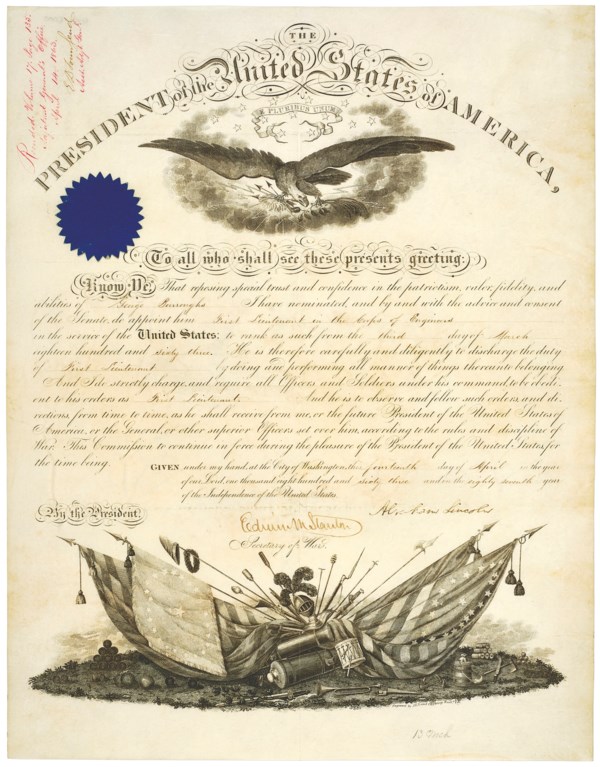 Recorded Volume 17, Page 125.
Adjutant General's Office
April 14 1863.
THE
PRESIDENT of the United States of AMERICA,
E PLURIBUS UNUM
To all who shall see these presents greeting:
Know Ye, That reposing special trust and confidence in the patriotism, valor, fidelity, and
abilities of George Burroughs I have nominated, and by and with the advice and consent
of the Senate, do appoint him First Lieutenant in the Corps of Engineers
in the service of the United States: to rank as such from the third day of March
eighteen hundred and sixty three. He is therefore carefully and diligently to discharge the duty
of First Lieutenant by doing and performing all manner of things thereunto belonging
And I do strictly charge, and require all Officers and Soldiers under his command, to be obedi-
ent to his orders as First Lieutenant. And he is to observe and follow such orders, and di-
rections, from time to time, as he shall receive from me, or the future President of the United States of
America, or the General, or other superior Officers set over him, according to the rules and discipline of
War. This Commission to continue in force during the pleasure of the President of the United States, for
the time being.
GIVEN under my hand, at the City of Washington this fourteenth day of April in the year
of our Lord, one thousand eight hundred and sixty three and in the eighty seventh year
of the Independence of the United States.
By the President,
Abraham Lincoln
Edwin M Stanton
Secretary of War.